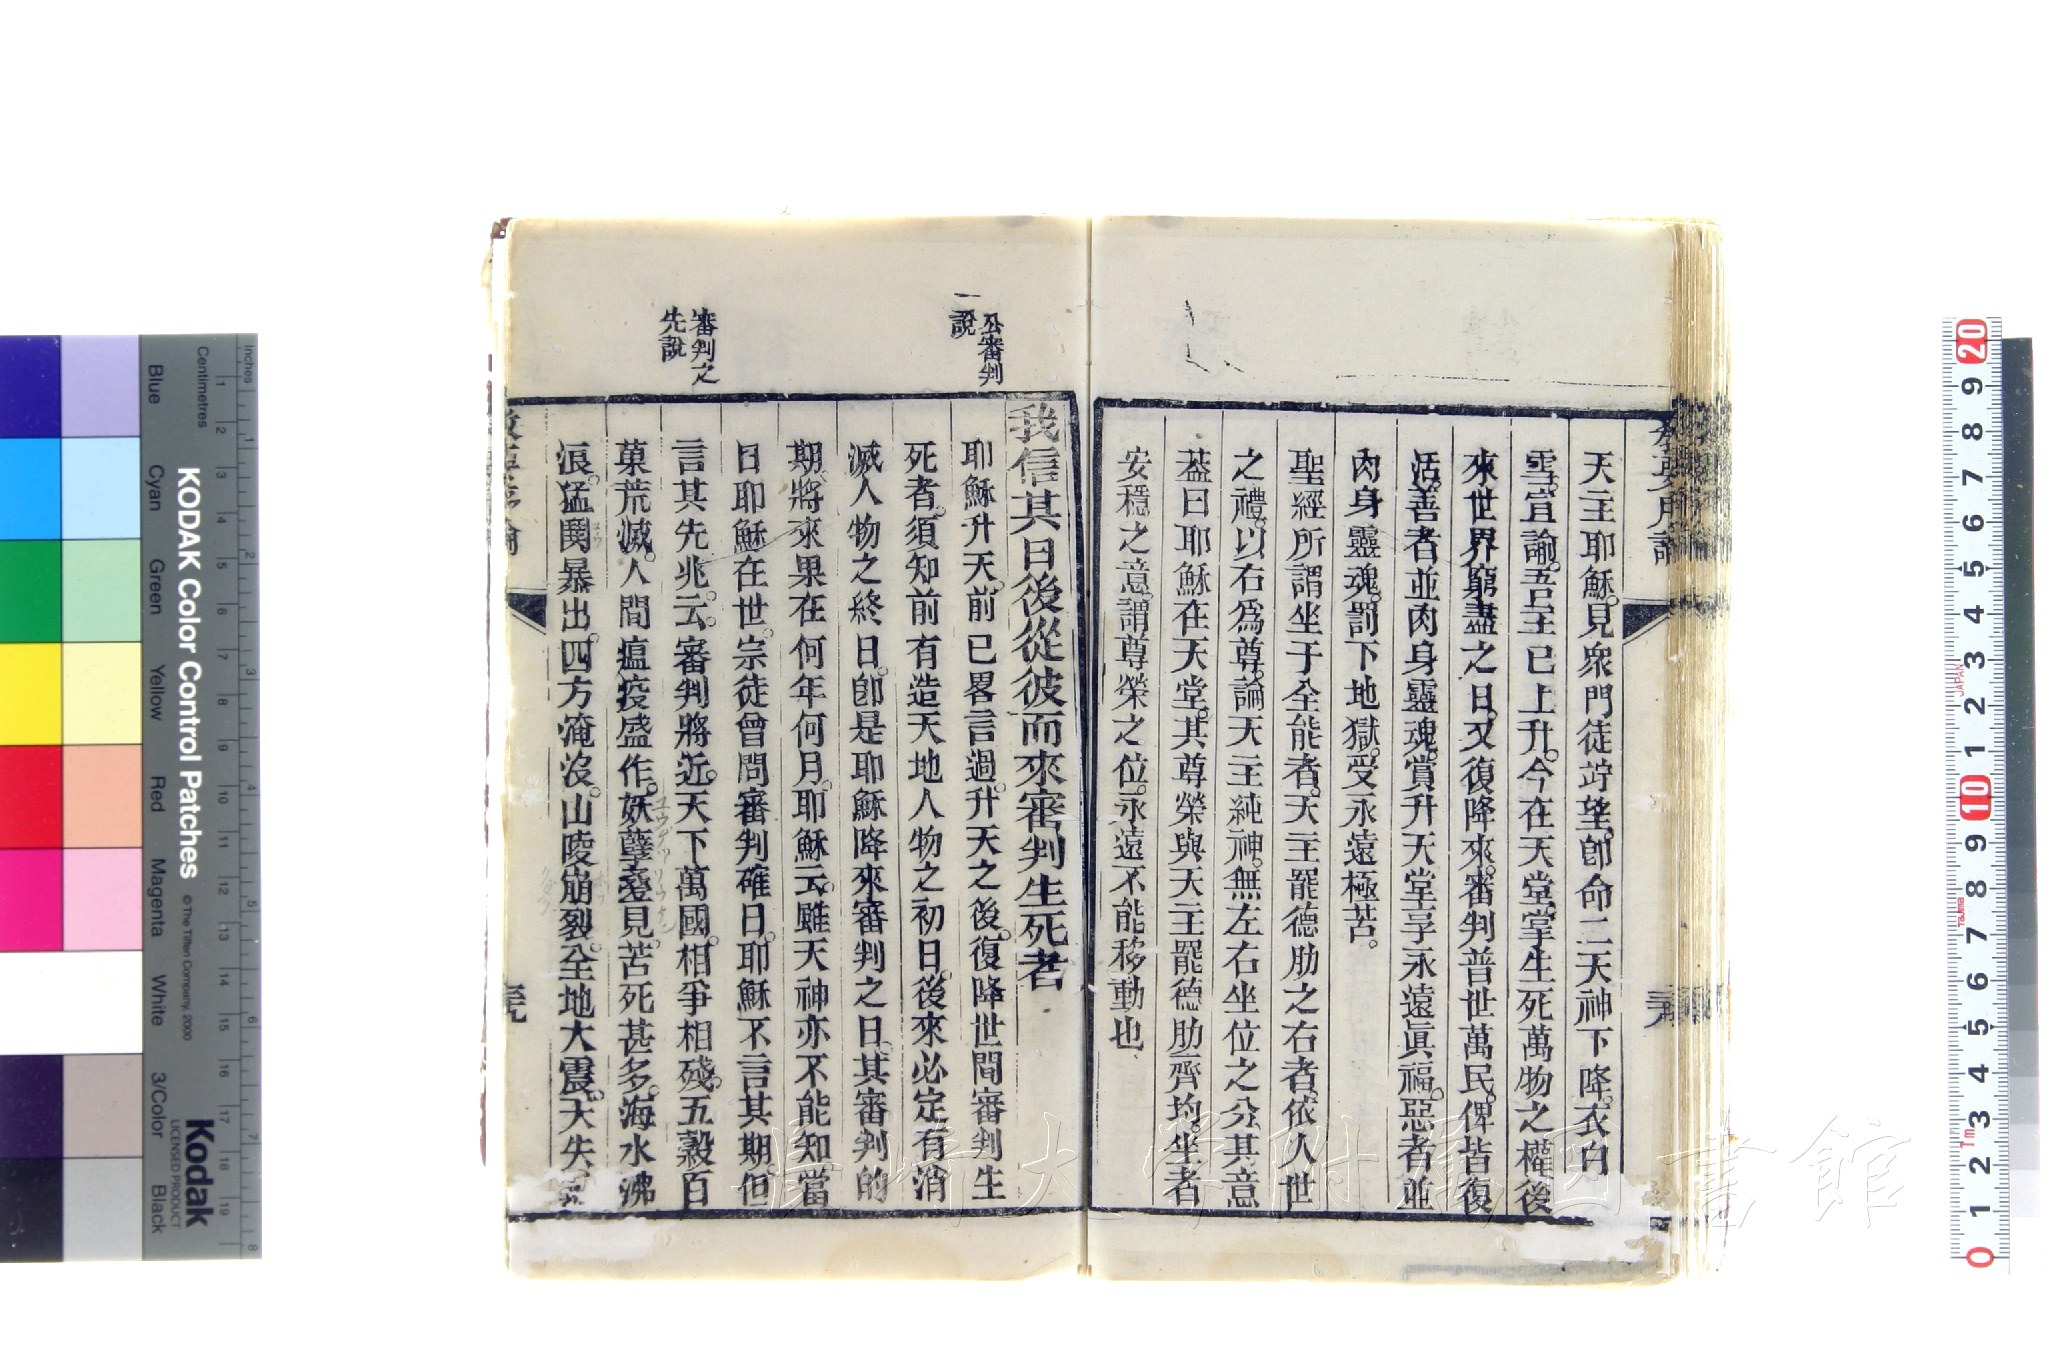 天主耶穌。見衆門徒竚望。卽命二天神下降。衣白
雪。宣諭。吾主已上升。今在天堂。掌生死萬物之權。後
來世界窮盡之日。又復降來。審判普世萬民。俾皆復
活。善者並肉身靈魂。賞升天堂。享永遠眞福。惡者並
肉身靈魂。罰下地獄。受永遠極苦。
聖經所謂坐于全能者。天主罷德肋之右者。依人世
之禮。以右爲尊。論天主純神。無左右坐位之分。其意
葢曰耶穌在天堂。其尊榮與天主罷德肋齊均。坐者
安穩之意。謂尊榮之位。永遠不能移動也
公審判
一說
我信其日後從彼而來審判生死者
耶穌升天。前已畧言過。升天之後。復降世間審判生
死者。須知前有造天地人物之初日。後來必定有消
滅人物之終日。卽是耶穌降來審判之日。其審判的
期。將來果在何年何月。耶穌云。雖天神亦不能知當
日耶穌在世。宗徒曾問審判確日。耶穌不言其期。但
審判之
先說
言其先兆。云。審判將近。天下萬國。相爭相殘。五穀百
菓荒滅。人間瘟疫盛作。妖孽㬪見。苦死甚多。海水沸
浪。猛鬪暴出。四方淹沒。山陵崩裂。全地大震。天失
KODAK Color Control Patches
© The Tiffen Company, 2000
Kodak
LICENSED PRODUCT
Inches
Centimetres
Blue Cyan Green Yellow Red Magenta White 3/Color Black
長崎大学附属図書館
JAPAN